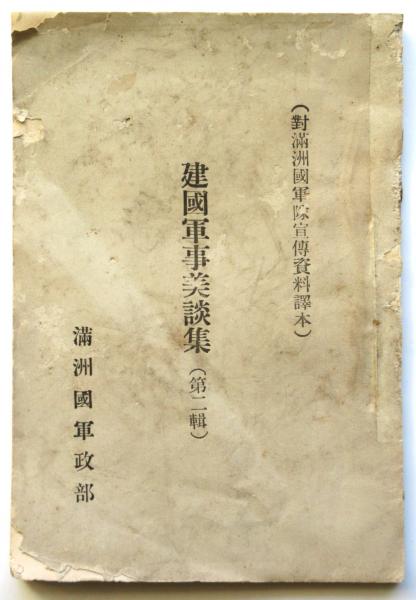 (對滿洲國軍隊宣傳資料譯本)
建國軍事美談集(第二輯)
滿洲國軍政部